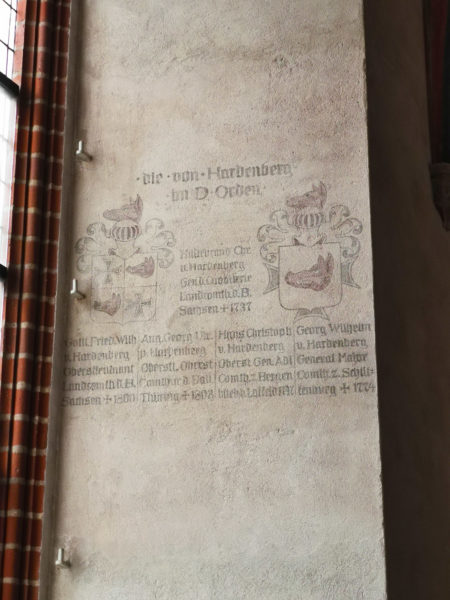 die · von · Hardenberg
im D. Orden.
Hildebrand Chr.
v. Hardenberg
Gen. d. Cavallerie
Landcomth. d. B.
Sachsen + 1737
Gottl. Fried. Wilh.
v. Hardenberg
Oberstlieutnant
Landcomth d. B.
Sachsen + 1800
Aug. Georg Ulr.
v. Hardenberg
Oberstl. Oberst
Comthur d. Ball.
Thüring + 1808
Hans Christoph
v. Hardenberg
Oberst Gen. Adj.
Comth. z. Bergen
Georg Wilhelm
v. Hardenberg,
General Major
Comth. z. Schil-
+ 1774